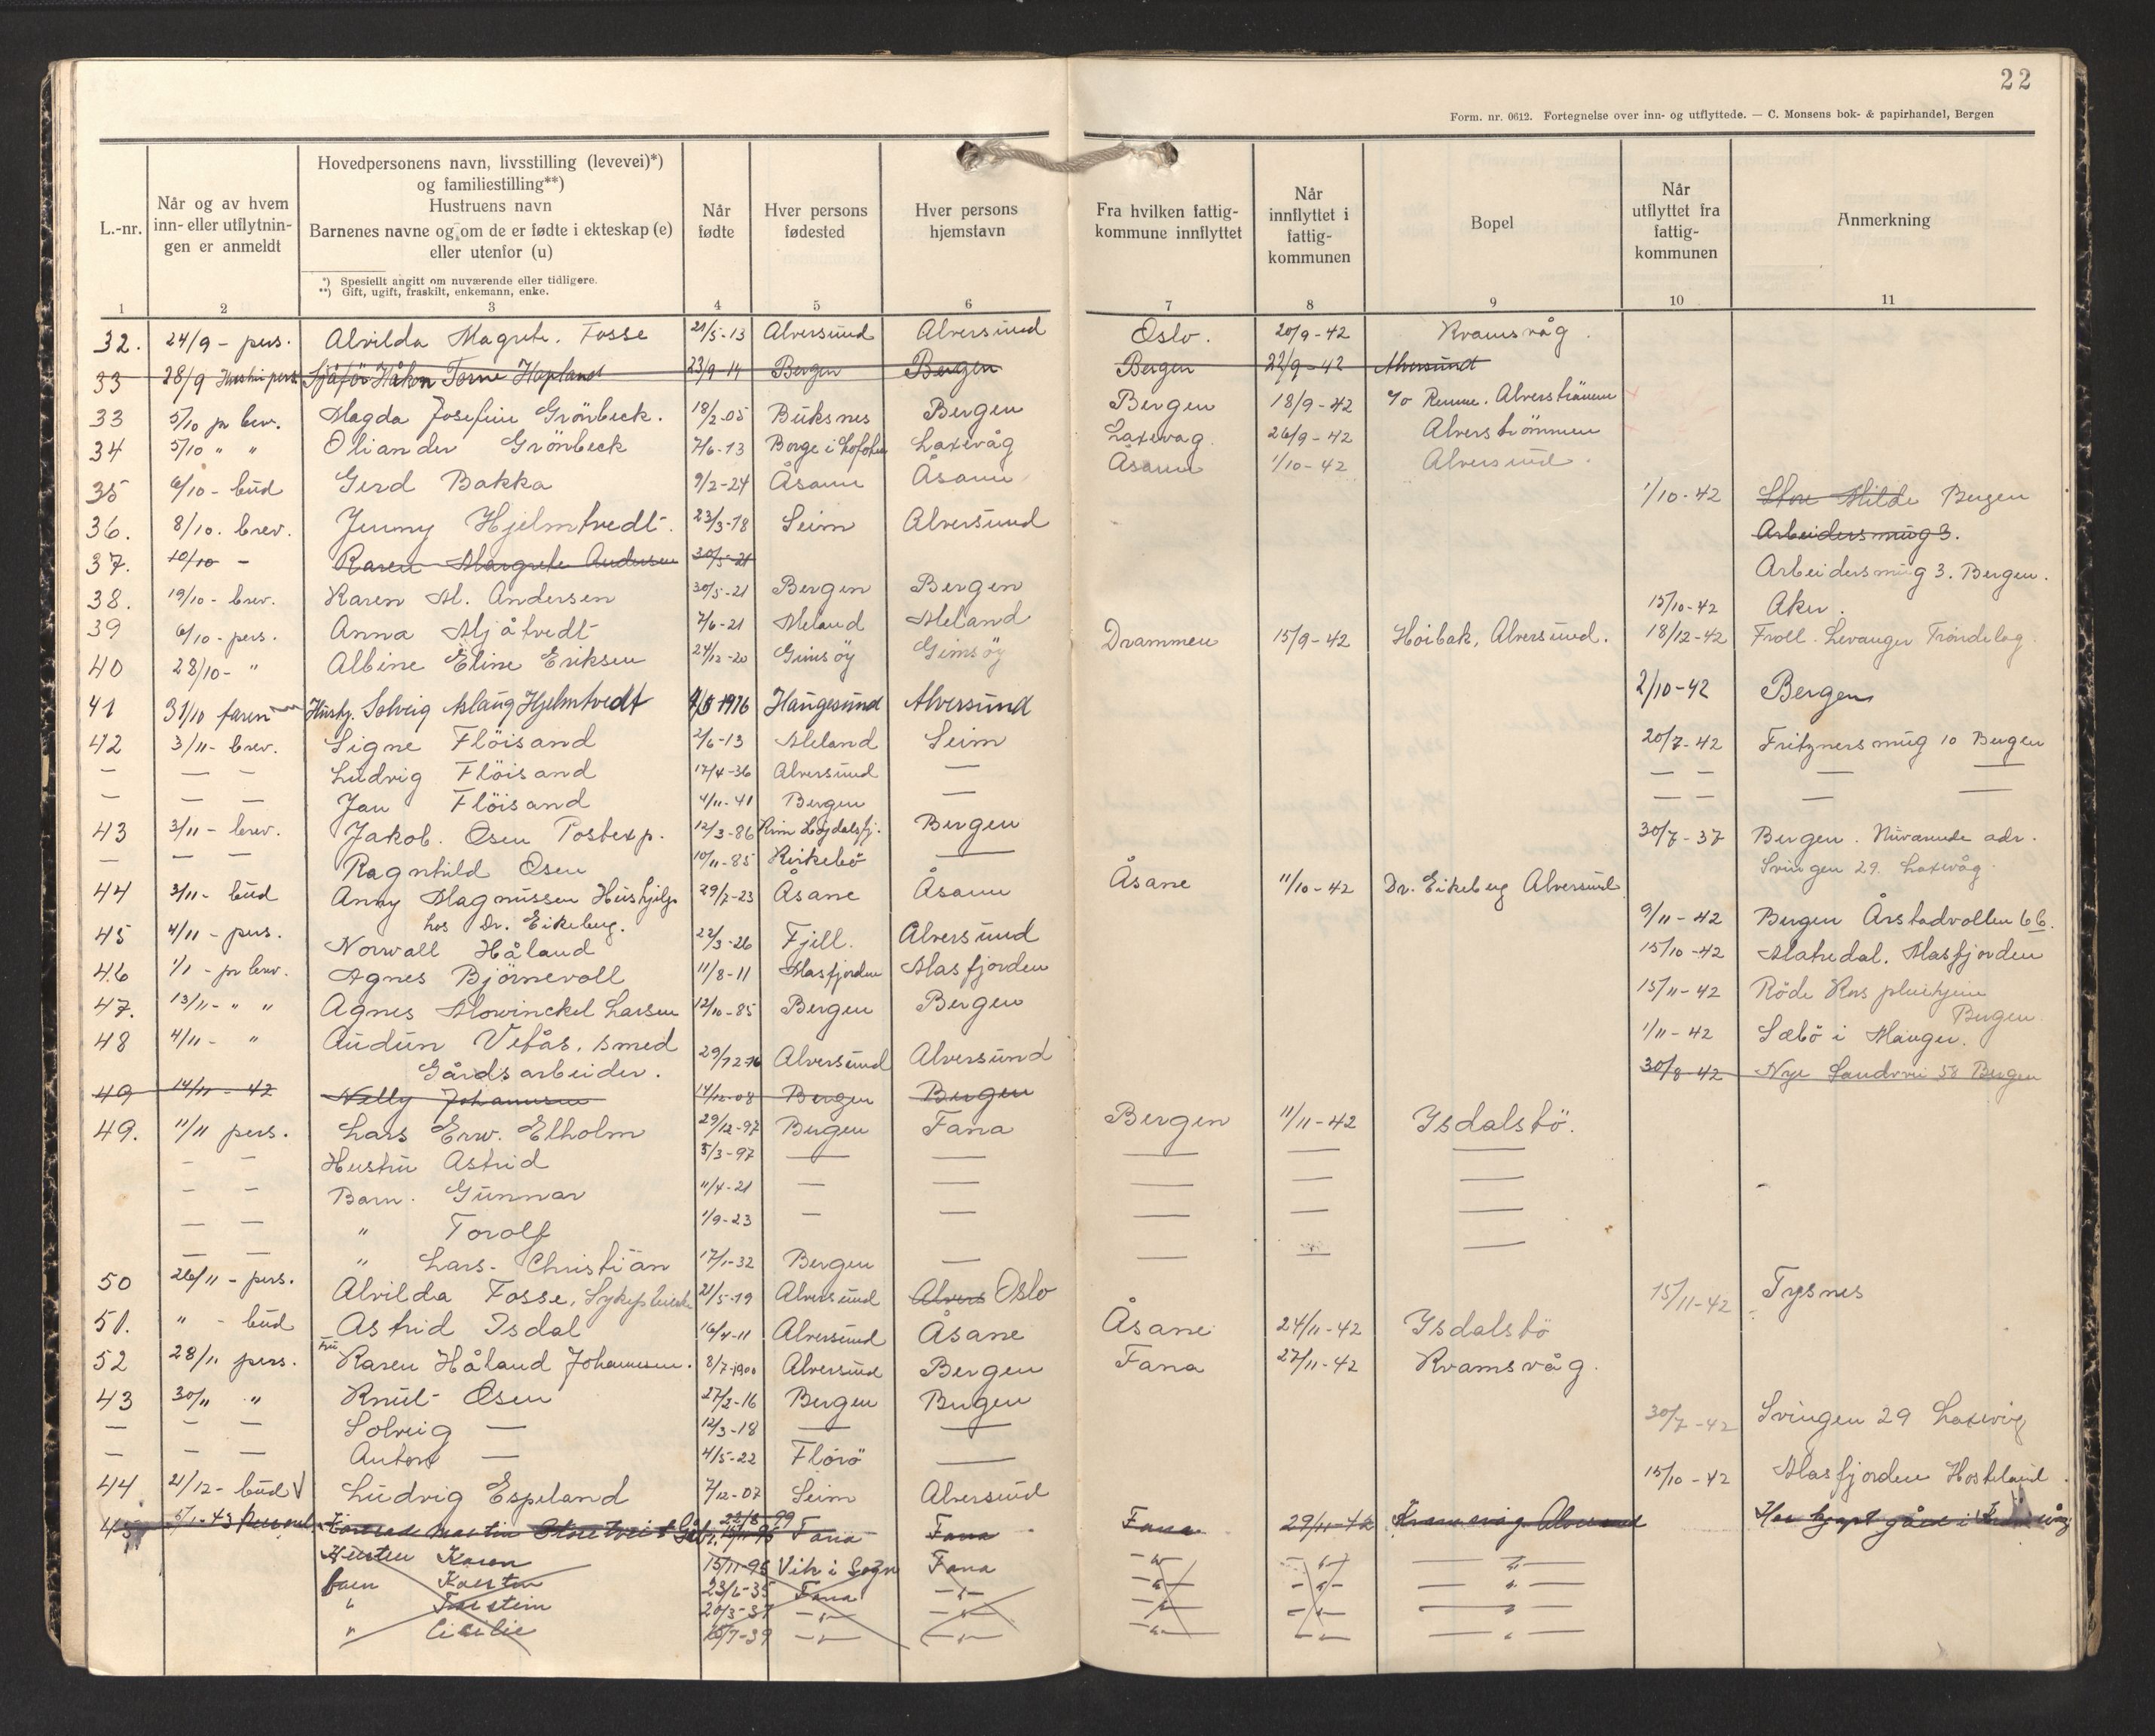 22
Form. nr. 0612. Fortegnelse over inn- og utflyttede. — C. Monsens bok- & papirhandel, Bergen
L.-nr.
Når og av hvem inn- eller utflytnin-gen er anmeldt
Hovedpersonens navn, livsstilling (levevei)*)
og familiestilling**)
Hustruens navn
Barnenes navne og om de er fødte i ekteskap (e)
eller utenfor (u)
*) Spesiellt angitt om nuværende eller tidligere.
**) Gift, ugift, fraskilt, enkemann, enke.
Når fødte
Hver persons fødested
Hver persons hjemstavn
Fra hvilken fattig-kommune innflyttet
Når innflyttet i fattig-kommunen
Bopel
Når utflyttet fra fattig-kommunen
Anmerkning
1 2 3 4 5 6 7 8 9 10 11
32. 24/9 - pers. Alvilda Magrete. Fosse 21/5-13 Alversund Alversund Oslo. 20/9-42 Kvamsvåg.
33 28/9 Hustru pers Sjåfør Håkon Torne Hopland 23/9-14 Bergen Bergen Bergen 22/9-42 Alversund
33 5/10 pr brev. Magda Josefine Grönbeck. 18/2-05 Buksnes Bergen Bergen 18/9-42 c/o Remme. Alverströmmen
34 5/10 " " Oliander Grönbeck 7/6-13 Borge i Lofoten Laxevåg Laxevag. 26/9-42 Alverströmmen
35 6/10 - bud Gerd Bakka 9/2-24 Åsane Åsane Åsane 1/10-42 Alversund.
36. 8/10. brev. Jenny Hjelmtvedt. 23/3-18 Seim Alversund 1/10-42 Store Milde Bergen
37. 10/10 - Karen Margrete Andersen 30/5-21 Arbeidersmug 3.
38. 19/10 - brev. Karen M. Andersen 30/5-21 Bergen Bergen Arbeidersmug 3. Bergen.
39 6/10 - pers. Anna Mjåtvedt 7/6-21 Meland Meland 15/10-42 Aker.
40 28/10 - " Albine Eline Eriksen 24/12-20 Gimsöy Gimsöy Drammen 15/9-42 Hoibak, Alversund. 18/12-42 Froll. Levanger Tröndelag
41 31/10 faren Hustr. Solveig Aslaug Hjelmtvedt 4/8 1916 Haugesund Alversund 2/10-42 Bergen
42 3/11 - brev. Signe Flöisand 2/6-13 Meland Seim 20/7-42 Fritznersmug 10 Bergen
— — — Ludvig Flöisand 17/4-36 Alversund — — — — —
— — — Jan Flöisand 4/11-41 Bergen — — — — —
43 3/11 - brev. Jakob. Osen Postexp. 12/3-86 Bergen 30/7-37 Bergen. Nuværende adr.
— — — Ragnhild Osen 10/11-85 Kirkebö — Svingen 29. Laxevåg.
44 3/11 - bud Anny Magnussen Hushjelp 29/7-23 Åsane Åsane Åsane 11/10-42 Dr. Eikeberg Alversund
hos Dr. Eikeberg.
45 4/11 - pers. Norvall Håland 22/3-26 Fjell. Alversund 9/11-42 Bergen Årstadvollen 6 b.
46 1/1 - pr brev. Agnes Björnevoll 11/8-11 Masfjorden Masfjorden 15/10-42 Matredal. Masfjorden
47. 13/11 - " " Agnes Mowinckel Larsen 12/10-85 Bergen Bergen 15/11-42 Röde Kors pleiehjem Bergen.
48 4/11 - " Audun Vetås. smed 29/12-76 Alversund Alversund 1/11-42 Sæbö i Manger.
Gårdsarbeider.
49 14/11 - 42 Nelly Johannesen 14/12-08 Bergen Bergen 30/8-42 Nye Sandvei 58 Bergen
49. 11/11 pers. Lars Erw. Elholm 29/12-97 Bergen Fana Bergen 11/11-42 Isdalstö.
— — Hustru Astrid 5/3-97 — — — — —
— — Barn. Gunnar 11/4-21 — — — — —
— — " Torolf 1/9-23 — — — — —
— — " Lars-Christian 17/1-32 Bergen — — — —
50 26/11 - pers. Alvilda Fosse, Sykepleierske 21/5-19 Alversund Alvers Oslo 15/11-42 Tysnes
51. " - bud Astrid Isdal 16/4-11 Alversund Åsane Åsane 24/11-42 Isdalstö
52 28/11 pers. fru Karen Håland Johannesen. 8/7-1900 Alversund Bergen Fana 27/11-42 Kvamsvåg.
43 30/11 " Knut Osen 27/2-16 Bergen Bergen 30/7-42 Svingen 29 Laxevåg
— — — Solveig — 12/3-18 — —
— — — Anton — 4/5-22 Florö —
44 21/12 - bud V Ludvig Espeland 7/12-07 Seim Alversund 15/10-42 Masfjorden Hosteland.
45 5/1-43 Personl. Martin 22/8-99 Fana Fana Fana 29/11-42 Kvamsvåg Alversund Har kjøpt gård i Kvamsvåg
Hustru Karen 15/11-95 Vik i Sogn Fana — " — — " — — " —
barn Karsten 23/6-35 Fana — " — — " — — " — — " —
" Torstein 20/3-37 — " — — " — — " — — " — — " —
" Cicilie 10/7-39 — " — — " — — " — — " — — " —